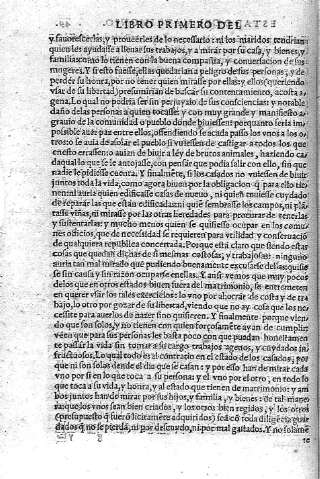 LIBRO PRIMERO DEL
y fauorescerlas, y proueerles de lo necessario: ni los maridos tendrian
quien les ayudasse a lleuar sus trabajos, y a mirar por su casa, y bienes, y
familia: como lo tienen con la buena compañia, y conuersacion de sus
mugeres. Y esto fuesse, ellas quedarian a peligro de sus personas, y de
perder su honra, por no tener quien mirasse por ellas: y ellos, queriendo
vsar de su libertad, presumirian de buscar su contentamiento, acosta a
gena. Lo qual no podria ser sin perjuyzio de sus consciencias: y notable
daño de las personas a quien tocasse: y con muy grande y manifiesto a
grauio de la comunidad o pueblo donde biuiessen: porque no seria im
possible auer paz entre ellos, offendiendo se a cada passo los vnos a los o
tros: o se auia de assolar el pueblo, si vuiessen de castigar a todos los que
en esso errassen: o auian de biuir a ley de brutos animales, haziendo ca
da qual lo que se le antojasse, con pensar que podia salir con ello, sin que
nadie le pidiesse cuenta. Y finalmente, si los casados no vuiessen de biuir
juntos toda la vida, como agora biuen por la obligacion que para ello tie
nen: ni auria quien edificasse casas de nueuo, ni quien tuuiesse cuydado
de reparar las que estan edificadas: ni quien sembrasse los campos, ni plã
tasse viñas, ni mirasse por las otras heredades para procurar de tenerlas
y sustentarlas: y mucho menos quien se quisiesse ocupar en los comu-
nes officios, que de necessidad se requieren para vtilidad y conseruació
de qualquiera republica concertada. Porque esta claro que siendo estas
cosas que quedan dichas de si mesmas costosas, y trabajosas: ninguno
auria tan mal mirado que pudiendo buenamente escusarse dellas: quisies
se sin causa y sin razon ocuparse en ellas. Y ansi vemos que muy pocos
delos que en otros estados biuen fuera del matrimonio, se entremeten
en querer vsar los tales exercicios: lo vno por ahorrar de costa y de tra
bajo, lo otro por gozar de su libertad, viendo que no ay cosa que les ne-
cessite para auerlos de hazer sino quisieren. Y finalmente porque vien-
do que son solos, y no tienen con quien forçosamẽte ayan de cumplir:
vẽen que para sus personas les basta poco con que puedan honestamen
te passar la vida sin tomar a su cargo trabajos agenos, y cuydados in-
fructuosos. Lo qual todo es al contrario en el estado de los casados, por
que ni son solos dende el dia que se casan: y por esso han de mirar cada
vno por si en lo que toca a su persona: y el vno por el otro, en todo lo
que toca a su vida, y honra, y al estado que tienen de matrimonio: y am
bos juntos han de mirar por sus hijos, y familia, y bienes: de tal mane-
ra que los vnos sean bien criados, y los otros bien regidos, y los otros
(presupuesto que fuerõ licitamẽte adquiridos) seã cõ toda diligẽcia guar
dados que no se pierda, ni por descuydo, ni por mal gastados. Y no solamẽ
te